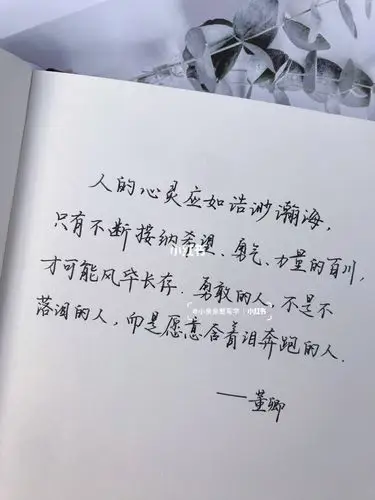 人的心灵应如浩渺瀚海，
只有不断接纳希望、勇气、力量的百川，
才可能风华长存.勇敢的人，不是不
落泪的人，而是愿意含着泪奔跑的人.
——董卿
小红书
小红书